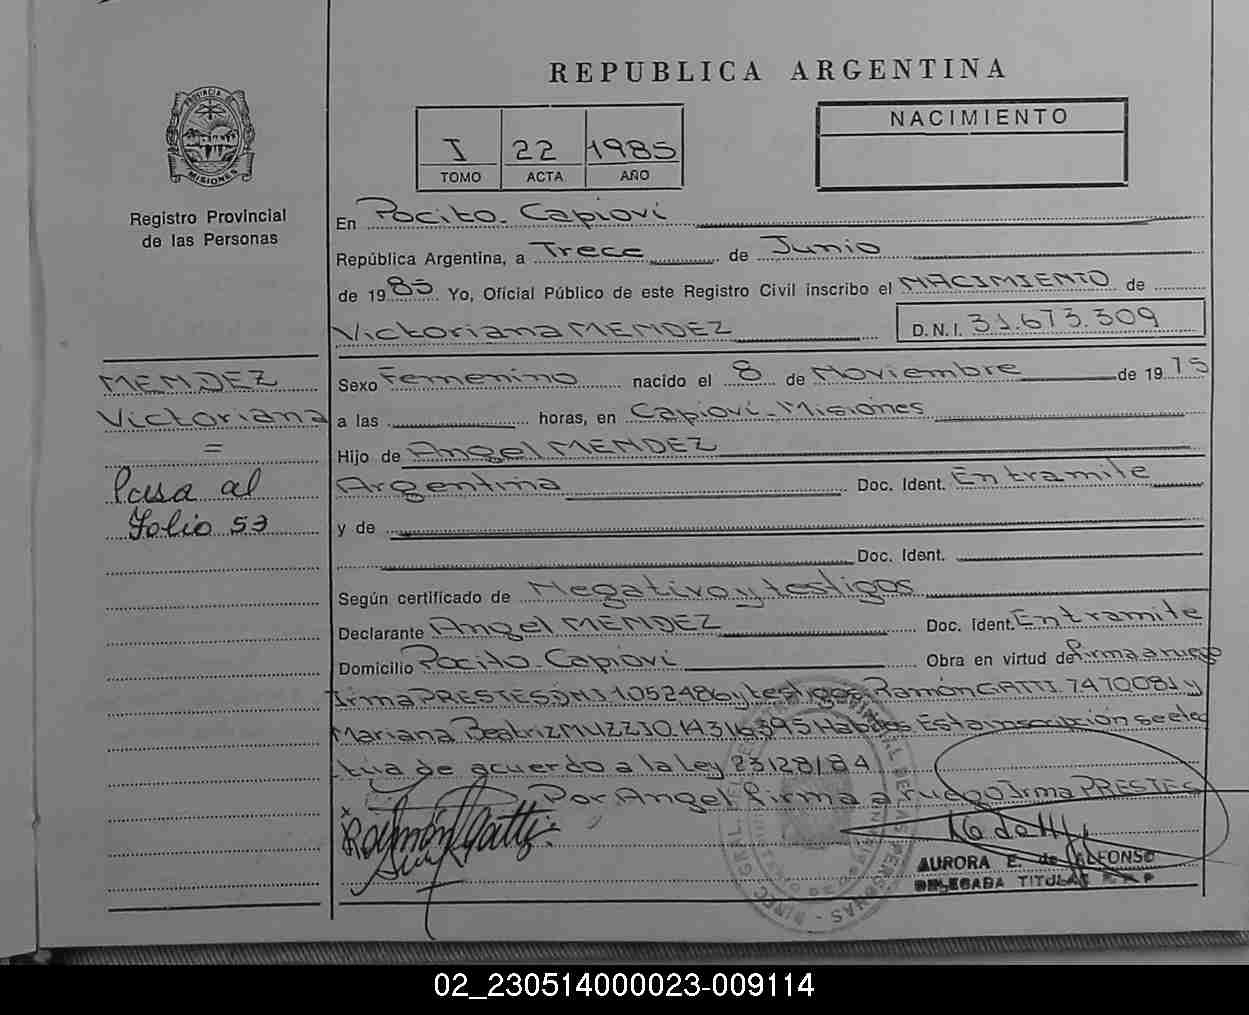 REPUBLICA ARGENTINA
PROVINCIA DE
MISIONES
Registro Provincial
de las Personas
I 22 1985
TOMO ACTA AÑO
NACIMIENTO
En Pocito - Capioví
República Argentina, a Trece de Junio
de 1985 Yo, Oficial Público de este Registro Civil inscribo el NACIMIENTO de
Victoriana MENDEZ D.N.I. 31.673.309
MENDEZ
Victoriana
=
Pasa al
Folio 53
Sexo Femenino nacido el 8 de Noviembre de 1975
a las horas, en Capioví - Misiones
Hijo de Angel MENDEZ
Argentina Doc. Ident. En tramite
y de
Doc. Ident.
Según certificado de Negativo y testigos
Declarante Angel MENDEZ Doc. Ident. En tramite
Domicilio Pocito - Capioví Obra en virtud de firma a ruego
Irma PRESTES DNI 1052486 y testigos Ramón GATTI 7470081 y
Mariana Beatriz MUZZIO 14316395 Habiles Esta inscripción se efec
túa de acuerdo a la ley 23128/84
Por Angel firma a ruego Irma PRESTES
Ramón Gatti
AURORA E. de ALFONSO
DELEGADA TITULAR
02_230514000023-009114